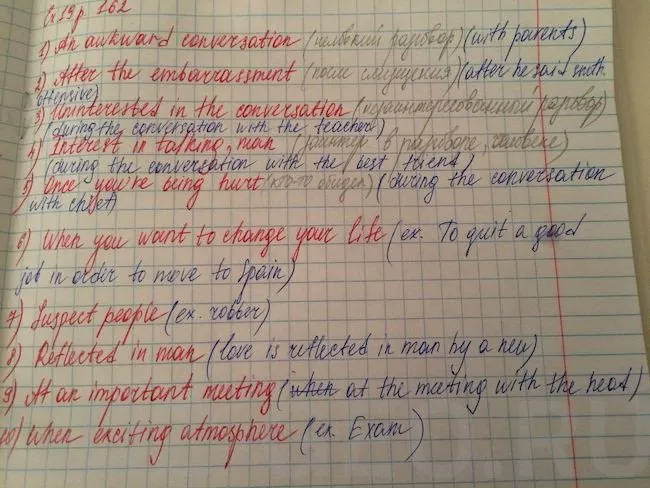 Ex 19 p. 162
1) An awkward conversation (неловкий разговор) (with parents)
2) After the embarrassment (после смущения) (after he said smth
offensive)
3) Uninterested in the conversation (незаинтересованный разговор)
(during the conversation with the teacher)
4) Interest in talking, man (в разговоре, человеке)
(during the conversation with the best friend)
5) Once you're being hurt (кто-то обидел) (during the conversation
with chief)
6) When you want to change your life (ex. To quit a good
job in order to move to Spain)
7) Suspect people (ex. robber)
8) Reflected in man (love is reflected in man by a new)
9) At an important meeting (when at the meeting with the head)
10) When exciting atmosphere (ex. Exam)